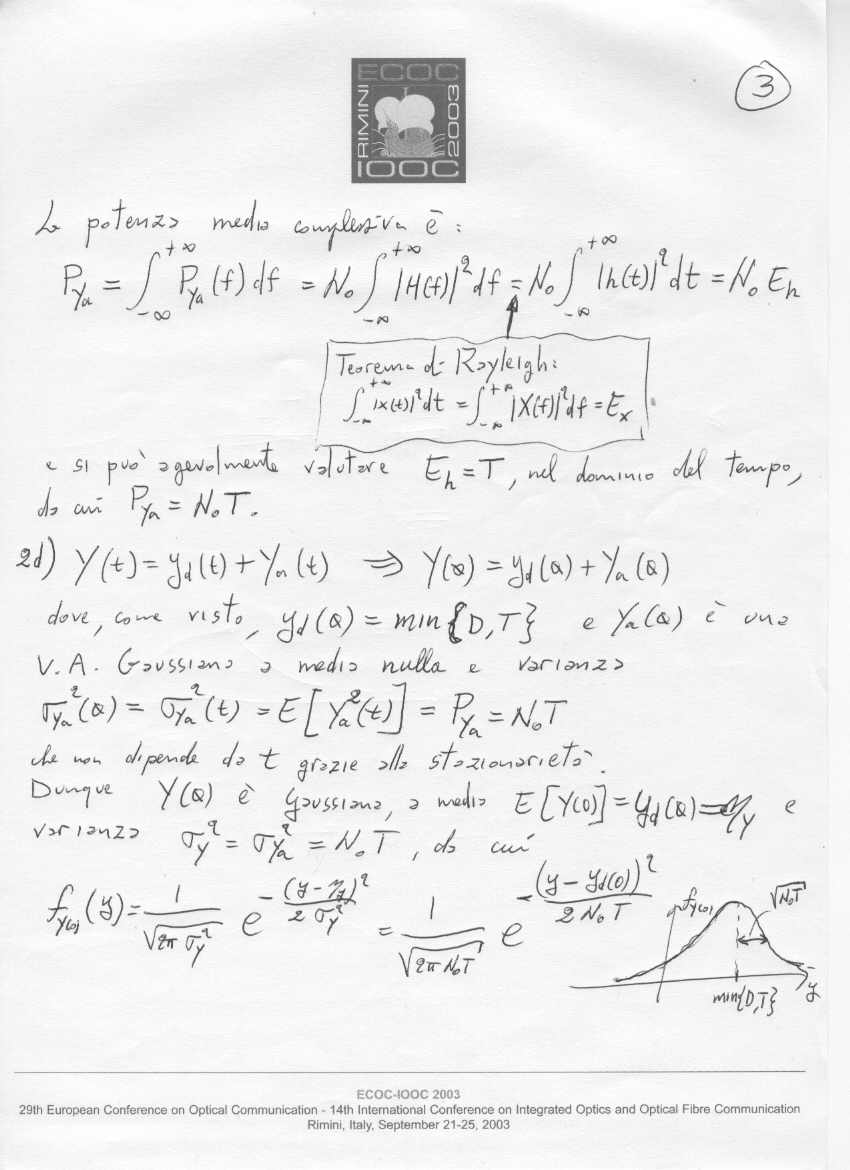 3
ECOC
RIMINI
2003
IOOC
La potenza media complessiva è:
P_{Ya} = ∫_{-∞}^{+∞} P_{Ya}(f) df = N₀ ∫_{-∞}^{+∞} |H(f)|² df = N₀ ∫_{-∞}^{+∞} |h(t)|² dt = N₀ E_h
Teorema di Rayleigh:
∫_{-∞}^{+∞} |x(t)|² dt = ∫_{-∞}^{+∞} |X(f)|² df = E_x
e si può agevolmente valutare E_h = T, nel dominio del tempo,
da cui P_{Ya} = N₀T.
2d) Y(t) = y_d(t) + Y_a(t) ⇒ Y(0) = y_d(0) + Y_a(0)
dove, come visto, y_d(0) = min{D,T} e Y_a(0) è una
V.A. Gaussiana a media nulla e varianza
σ²_{Ya}(0) = σ²_{Ya}(t) = E[Y_a²(t)] = P_{Ya} = N₀T
che non dipende da t grazie alla stazionarietà.
Dunque Y(0) è gaussiana, a media E[Y(0)] = y_d(0) = η_Y e
varianza σ_Y² = σ²_{Ya} = N₀T, da cui
f_{Y(0)}(y) = 1/√(2π σ_Y²) e^{-(y-η_y)²/(2σ_Y²)} = 1/√(2π N₀T) e^{-(y-y_d(0))²/(2N₀T)}
f_{Y(0)}
√(N₀T)
min{D,T}
y
ECOC-IOOC 2003
29th European Conference on Optical Communication - 14th International Conference on Integrated Optics and Optical Fibre Communication
Rimini, Italy, September 21-25, 2003